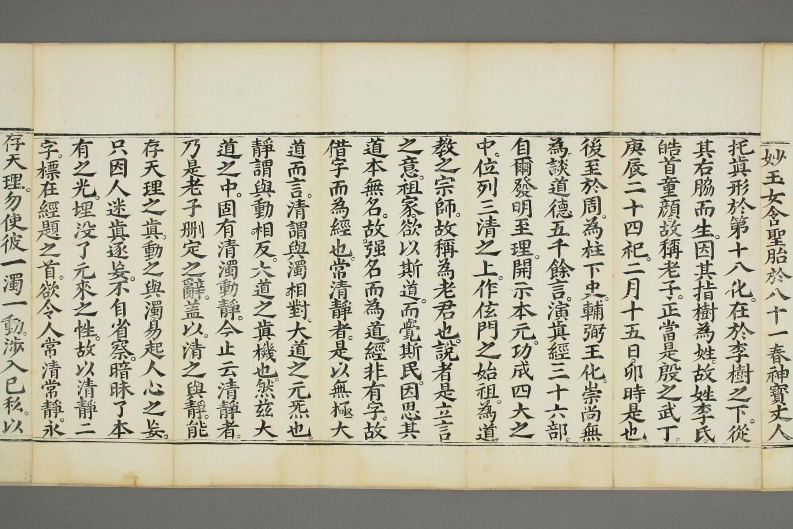 妙玉女含聖胎於八十一春神寶丈人
托眞形於第十八化在於李樹之下從
其右脇而生因其指樹為姓故姓李氏
皓首童顔故稱老子正當是殷之武丁
庚辰二十四祀二月十五日卯時是也
後至於周為柱下史輔弼王化崇尚無
為談道德五千餘言演眞經三十六部
自爾發明至理開示本元功成四大之
中位列三清之上作佐門之始祖為道
教之宗師故稱為老君也說者是立言
之意祖家欲以斯道而覺斯民因思其
道本無名故强名而為道經非有字故
借字而為經也常清靜者是以無極大
道而言清謂與濁相對大道之元炁也
靜謂與動相反大道之眞機也然茲大
道之中固有清濁動靜今止云清靜者
乃是老子刪定之辭盖以清之與靜能
存天理之眞動之與濁易起人心之妄
只因人迷眞逐妄不自省察暗昧了本
有之光埋没了元來之性故以清靜二
字標在經題之首欲令人常清常靜永
存天理勿使彼一濁一動涉入已私以